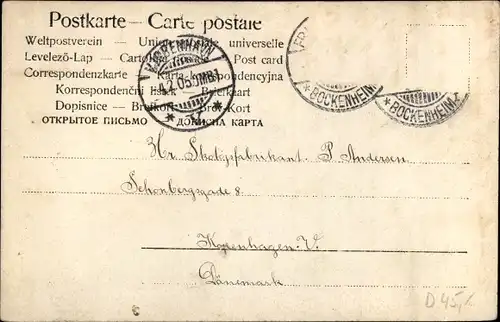 Postkarte — Carte postale
Weltpostverein — Union postale universelle
Levelező-Lap — Cartolina postale — Post card
Correspondenzkarte — Karta korespondencyjna
Korrespondenční lístek — Briefkaart
Dopisnice — Brefkort — Brev-Kort
ОТКРЫТОЕ ПИСЬМО ДОПИСНА КАРТА
KJØBENHAVN
4.2.05. 
BOCKENHEIM
BOCKENHEIM
Hr. P. Andersen
Schönbergsgade 8.
Kopenhagen. V.
Dänemark
D 45,-